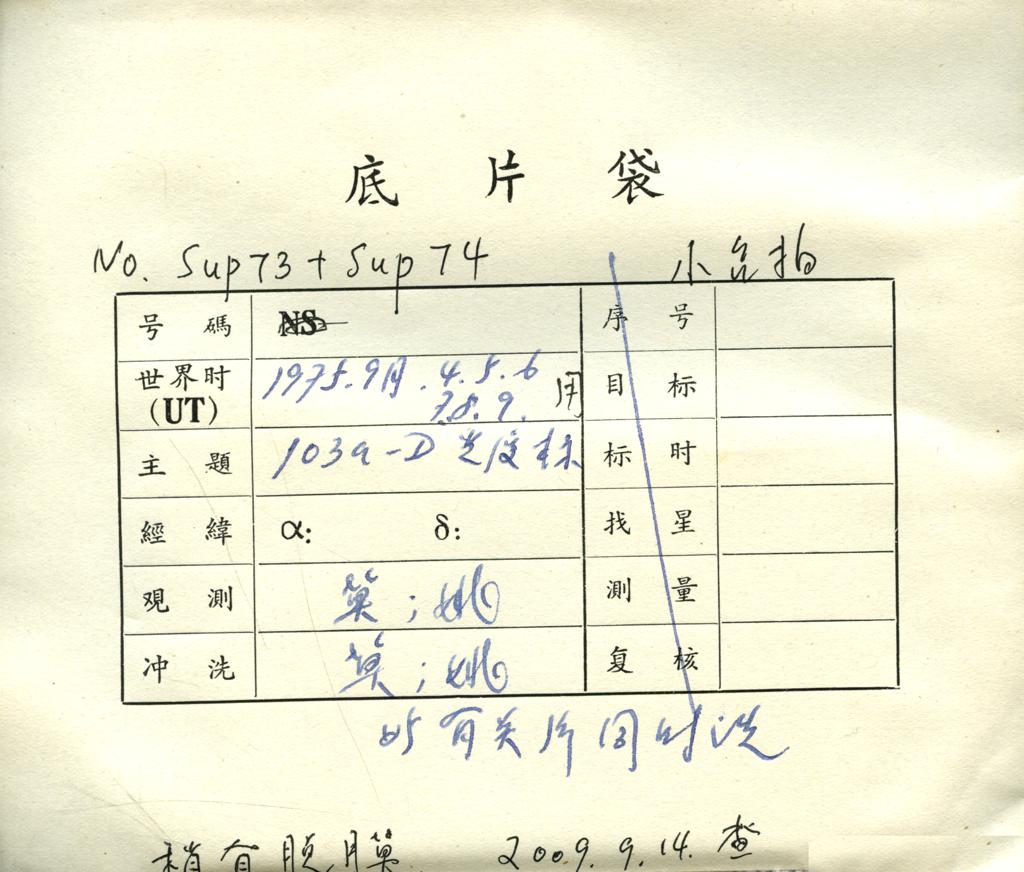 底片袋
No. Sup 73 + Sup 74 小台拍
号碼 NS 序号
世界时(UT) 1975.9月.4.5.6 7.8.9. 用 目标
主題 103a-D 光度标 标时
經緯 α: δ: 找星
观测 ; 姚 测量
冲洗 ; 姚 复核
与有关片同时洗
稍有脱膜 2009.9.14. 查